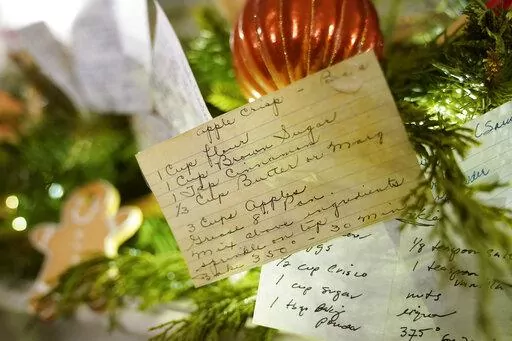 apple Crisp -
1 Cup flour
1 Cup Brown Sugar
1 Tsp Cinnamon
1/3 Cup Butter or Marg
3 Cups Apples
Grease 8" Pan.
Mix above ingredients
sprinkle on top
350° 30 Min
1/2 cup Crisco
1 cup sugar
1 tsp
Powder
1/8 teaspoon
1 teaspoon
nuts
375°